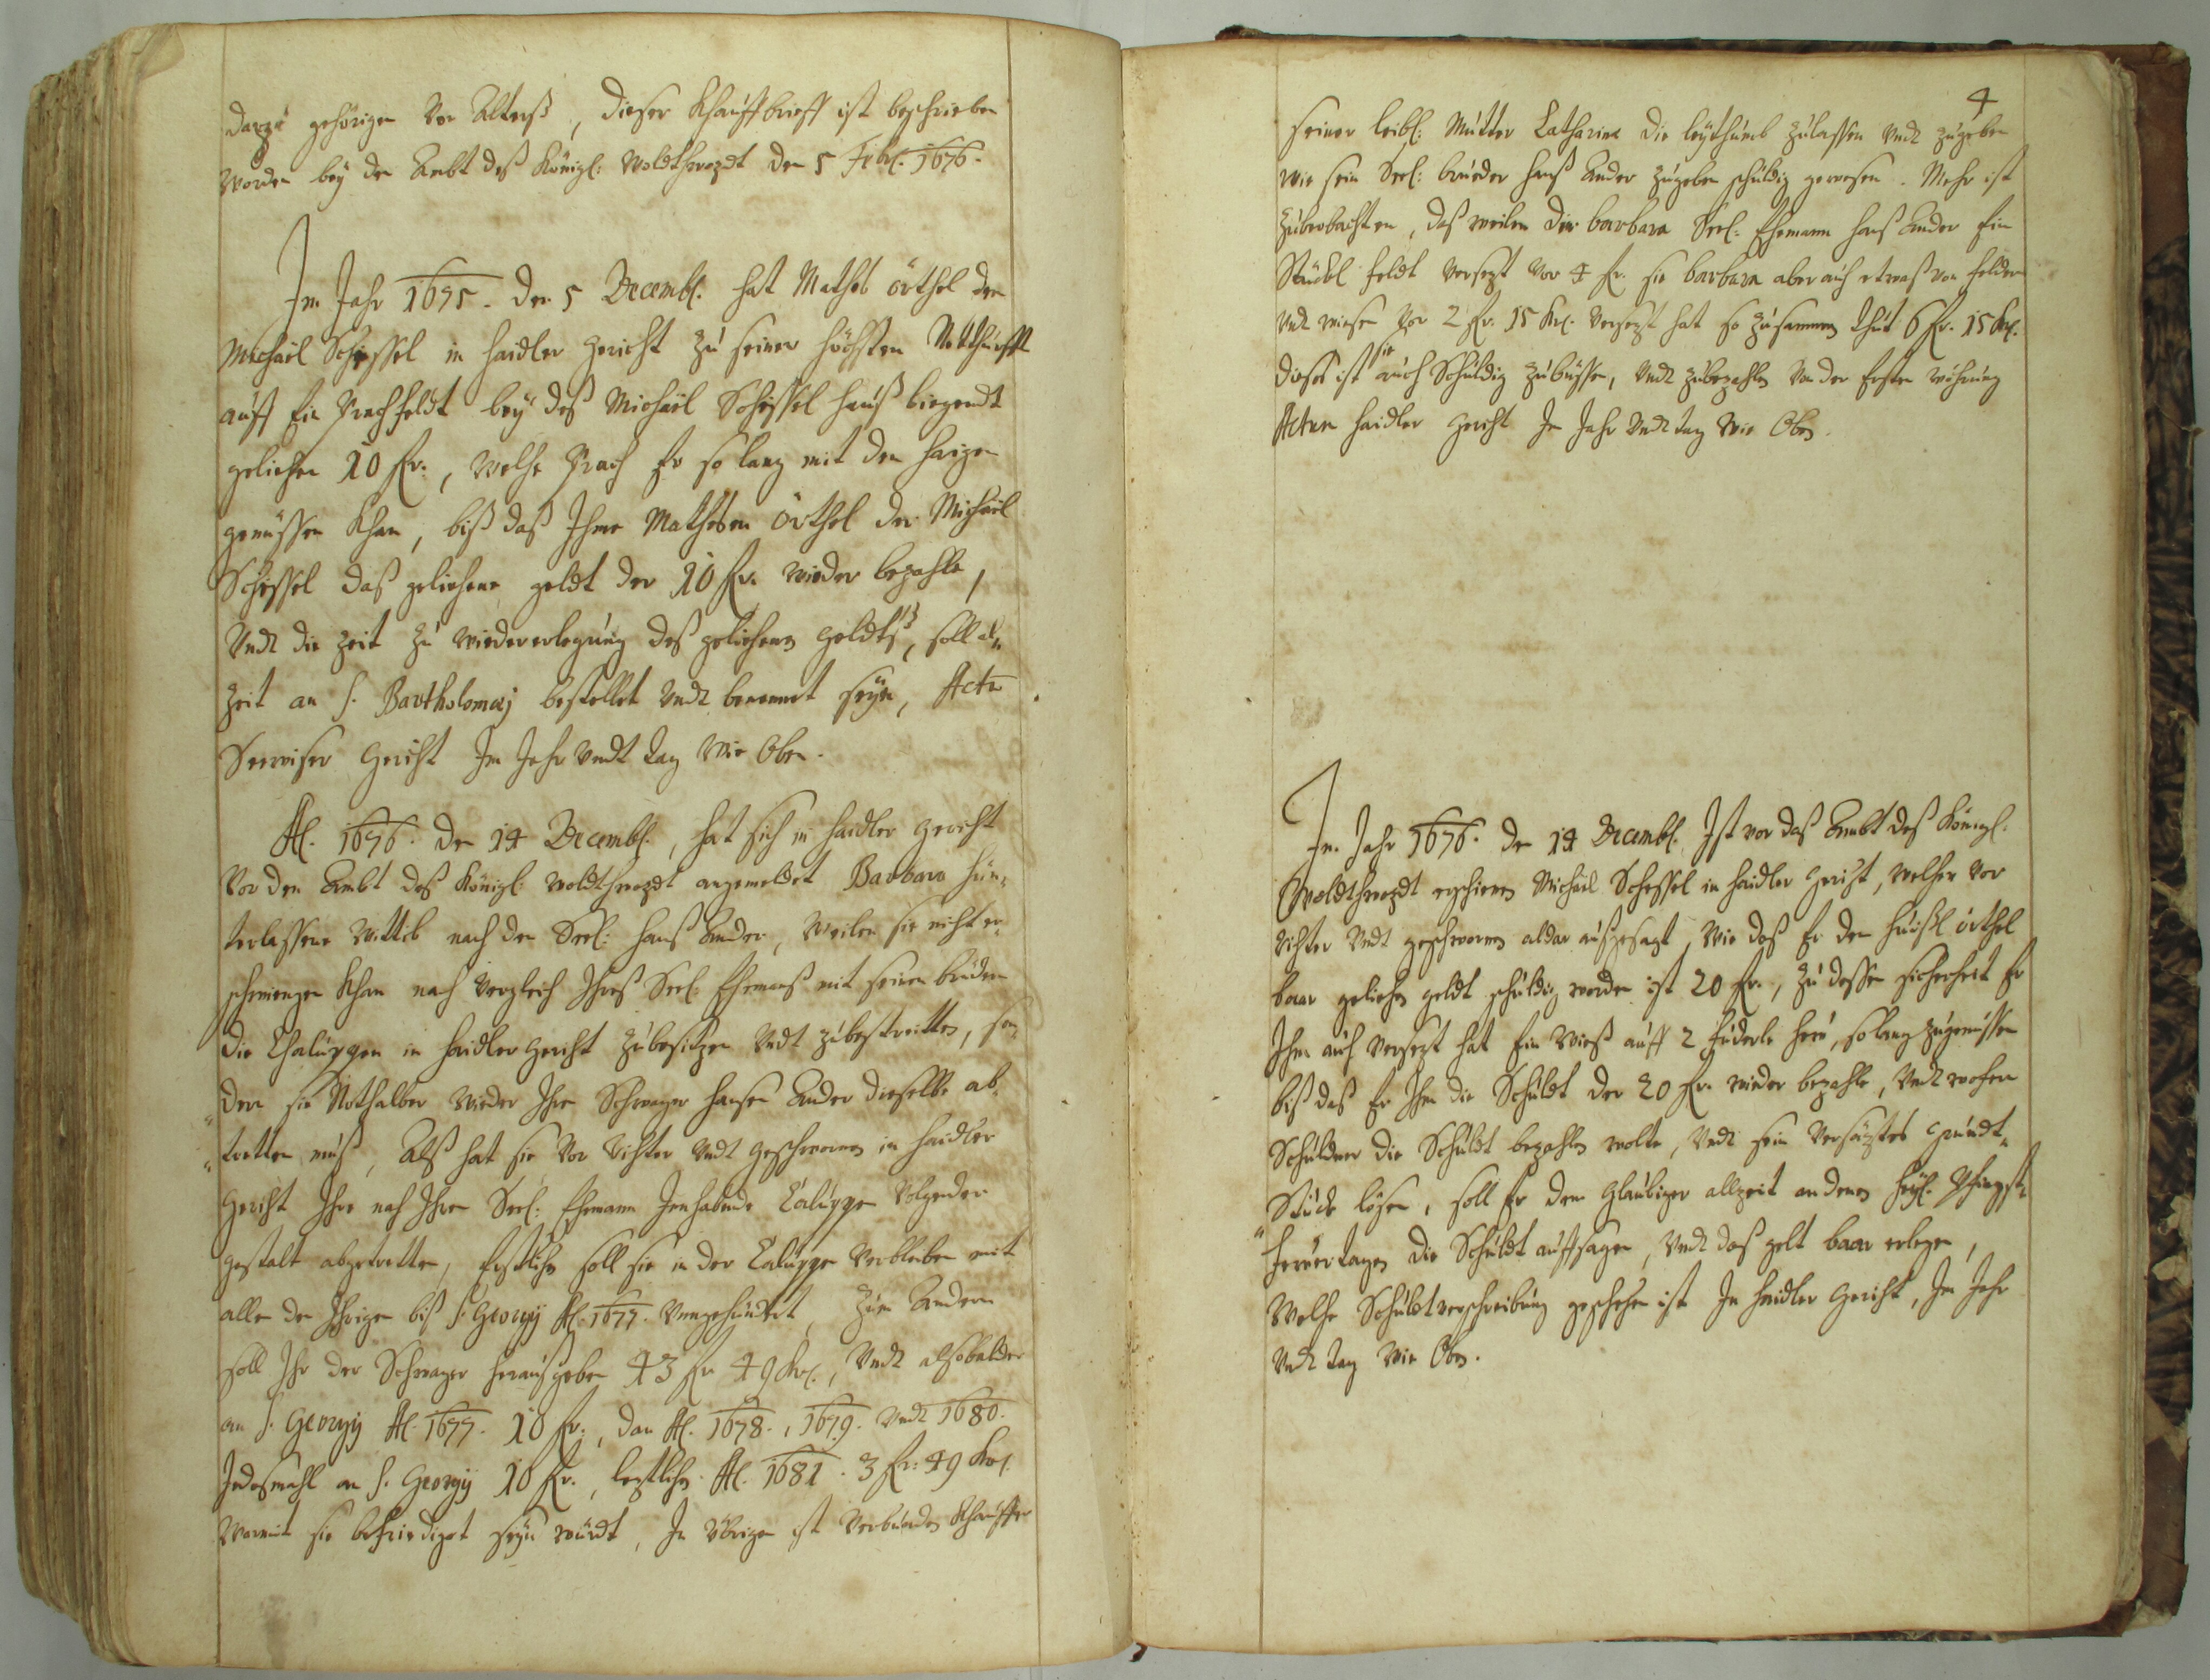 darzu gehörigen Von Alterß, dieser Khauffbrieff ist beschrieben
worden bey den Ambt deß Königl: Woldthwozdt den 5 Febr. 1676.
Im Jahr 1675. den 5 Decembl. hat Matheß örthel den
Michäel Schessel in Haidler Gericht zu seiner höchsten Notthurfft
auff ein Prachfeldt bey deß Michäel Schessel hauß liegendt
geliehen 10 fr., welche Prach Er so lang mit den
genüssen Khan, biß daß Ihme Mathesen Örthel der Michäel
Schessel daß geliehene geldt der 10 fr. wieder bezahle,
Vndt die Zeit zu wiedererlegung deß geliehenen geldtß, soll al„
Zeit an S. Bartholomaj bestellet Vndt benennet seyn, Actu
Seewiser Gericht Im Jahr Vndt tag Wie Oben.
Al. 1676. den 14 Decembl., hat sich in Haidler Gericht
Vor den Ambt deß Königl: Woldthwozdt angemeldet Barbara hün„
terlassene Wittib nach den Seel: Hanß Ander, Weilen sie nicht er„
schwingen Khan nach Vergleich Ihreß Seel: Ehemanß mit seinen brüdern
die Chaluppen in Haidler Gericht zu besitzen Vndt zubestreitten, son„
dern sie Nothalber Wieder Ihren Schwager Hansen Ander dieselbe ab„
„tretten muß, Alß hat sie Vor Richter Vndt Geschwornen in Haidler
Gericht Ihre nach Ihren Seel: Ehemann Innhabende Caluppe Volgender
gestalt abgetretten, Erstlichen soll sie in der Caluppe Verbleiben mit
allen den Ihrigen biß S. Georgij Al. 1677. Vngehindert, Zum Andern
soll Ihr der Schwager heraußgeben 43 fr. 49 Kr., Vndt alsobalden
an S. Georgij Al. 1677. 10 fr., dan Al. 1678., 1679. Vndt 1680.
Jedeßmahl an S. Georgij 10 fr., letztlichen Al. 1681. 3 fr: 49 Kr.
Wormit sie befriediget seyn würdt, Im Übrigen ist Verbunden Khauffer
4
seiner leibl: Mutter Catharina die leythumb zulassen Vndt zugeben
wie sein Seel: bruder Hanß Ander zugeben schuldig gewesen. Mehr ist
zubeobachten, daß weilen der barbara Seel: Ehemann Hanß Ander Ein
Stückl feldt Versezt Vor 4 fr. sie barbara aber auch etwaß von feldern
Vndt wiesen Vor 2 fr. 15 Kr. Versezt hat so zusammen thut 6 fr. 15 Kr.
dieses ist sie auch Schuldig zubüssen, Vndt zubezahlen Von der Ersten währung
Actum Haidler Gericht Im Jahr Vndt tag Wie Oben.
Im Jahr 1676. den 14 Decembl. Ist vor daß Ambt deß Königl.
Woldthwozdt erschienen Michäel Schessel in Haidler Gericht, welcher Vor
Richter Vndt geschwornen aldar außgesagt, Wie daß Er den örthel
baar geliehen geldt schuldig worden ist 20 fr., zu dessen sicherheit Er
Ihm auch Versezt hat Ein Wieß auff 2 fuderle heu, solang zugenüssen
biß daß Er Ihm die Schuldt der 20 fr. wieder bezahle, Vndt wofern
Schuldner die Schuldt bezahlen wolte, Vndt sein Versäztes Grundt„
Stück lösen, soll Er dem Glaubiger allzeit an denen heyl. Pfingst„
„feüertagen die Schuldt auffsagen, Vndt daß gelt baar erlegen,
Welche Schuldtverschreibung geschehen ist In Haidler Gericht, Im Jahr
Vndt tag Wie Oben.